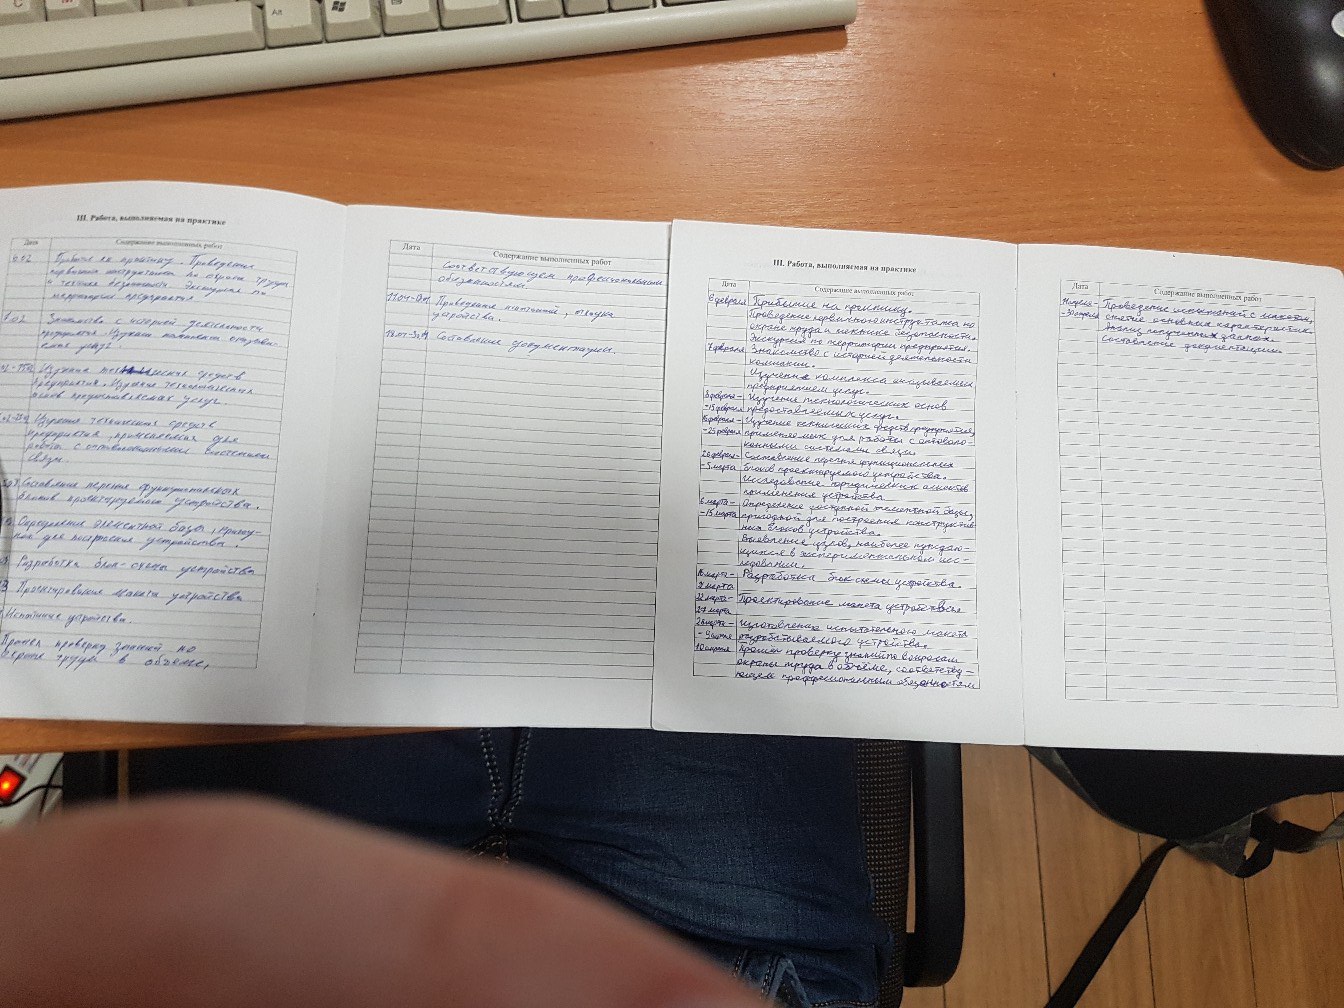 III. Работа, выполняемая на практике
Дата Содержание выполненных работ
6.02 Прибытие на практику. Проведение
первичного инструктажа по охране труда
и технике безопасности. Экскурсия по
территории предприятия.
Знакомство с историей деятельности
предприятия. Изучение
услуг.
Изучение средств
предприятия. Изучение технологических
основ предоставляемых услуг.
Изучение технических средств
предприятия, применяемых для
работы с оптоволоконными системами
связи.
Составление перечня функциональных
блоков проектируемого устройства.
Определение элементной базы, пригод-
ной для построения устройства.
Разработка блок-схемы устройства
Проектирование макета устройства
Испытание устройства.
Прошел проверку знаний по
охране труда в объеме,
Дата Содержание выполненных работ
соответствующем профессиональным
обязанностям.
Проведение испытаний, отладка
устройства.
Составление документации.
III. Работа, выполняемая на практике
Дата Содержание выполненных работ
6 февраля Прибытие на практику.
Проведение первичного инструктажа по
охране труда и технике безопасности.
Экскурсия по территории предприятия.
7 февраля Знакомство с историей деятельности
компании.
Изучение комплекса оказываемых
предприятием услуг.
8 февраля - Изучение технологических основ
- 15 февраля предоставляемых услуг.
16 февраля - Изучение технических средств предприятия,
- 25 февраля применяемых для работы с оптоволо-
конными системами связи.
26 февраля - Составление перечня функциональных
- 5 марта блоков проектируемого устройства.
Исследование юридических аспектов
применения устройства
6 марта - Определение доступной элементной базы,
- 15 марта пригодной для построения конструктив-
ных блоков устройства.
Выявление узлов, наиболее нуждаю-
щихся в экспериментальном исс-
ледовании.
16 марта - Разработка блок схемы устройства.
марта
22 марта - Проектирование макета устройства
27 марта
28 марта - Изготовление испытательного макета
- 9 апреля разрабатываемого устройства.
10 апреля Прошел проверку знаний по вопросам
охраны труда в объёме, соответству-
ющем профессиональным обязанностям
Дата Содержание выполненных работ
11 апреля - Проведение испытаний с макетом,
- 30 апреля снятие основных характеристик.
Анализ полученных данных.
Составление документации.